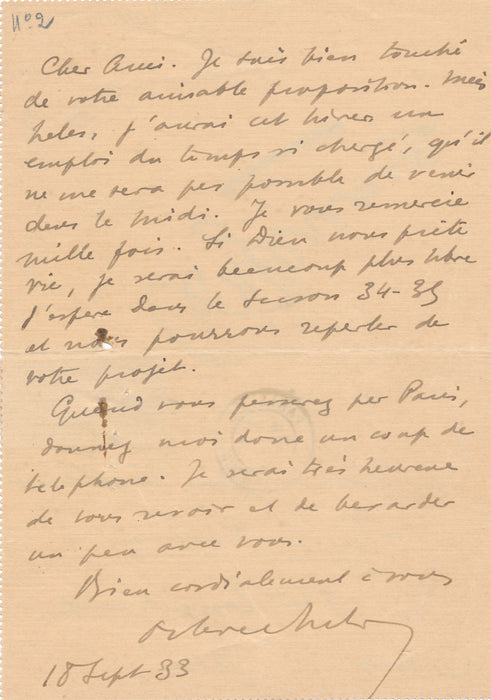 N° 2
Cher Ami. Je suis bien touché
de votre aimable proposition. Mais
helas, j'aurai cet hiver un
emploi du temps si chargé, qu'il
ne me sera pas possible de venir
dans le Midi. Je vous remercie
mille fois. Si Dieu nous prête
vie, je serai beaucoup plus libre
j'espère dans la saison 34-35
et nous pourrons reparler de
votre projet.
Quand vous passerez par Paris,
donnez moi donc un coup de
telephone. Je serai très heureux
de vous revoir et de bavarder
un peu avec vous.
Bien cordialement à vous
18 Sept 33